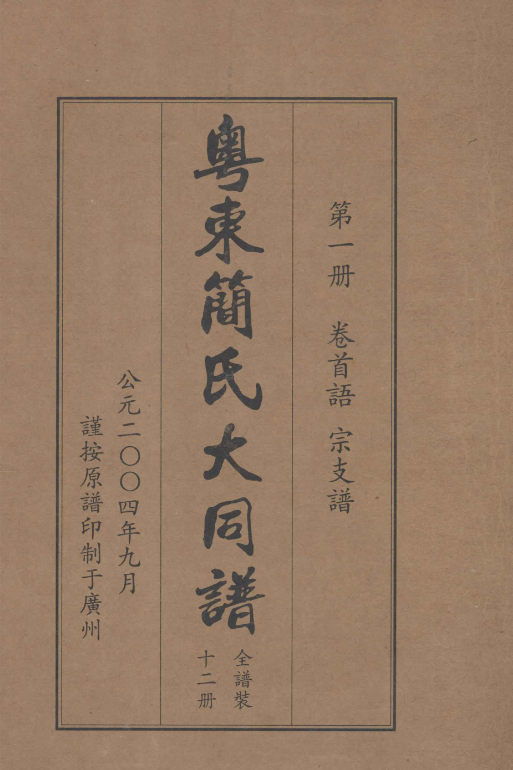 第一册 卷首語 宗支譜
粵東簡氏大同譜
全譜裝
十二册
公元二〇〇四年九月
謹按原譜印制于廣州